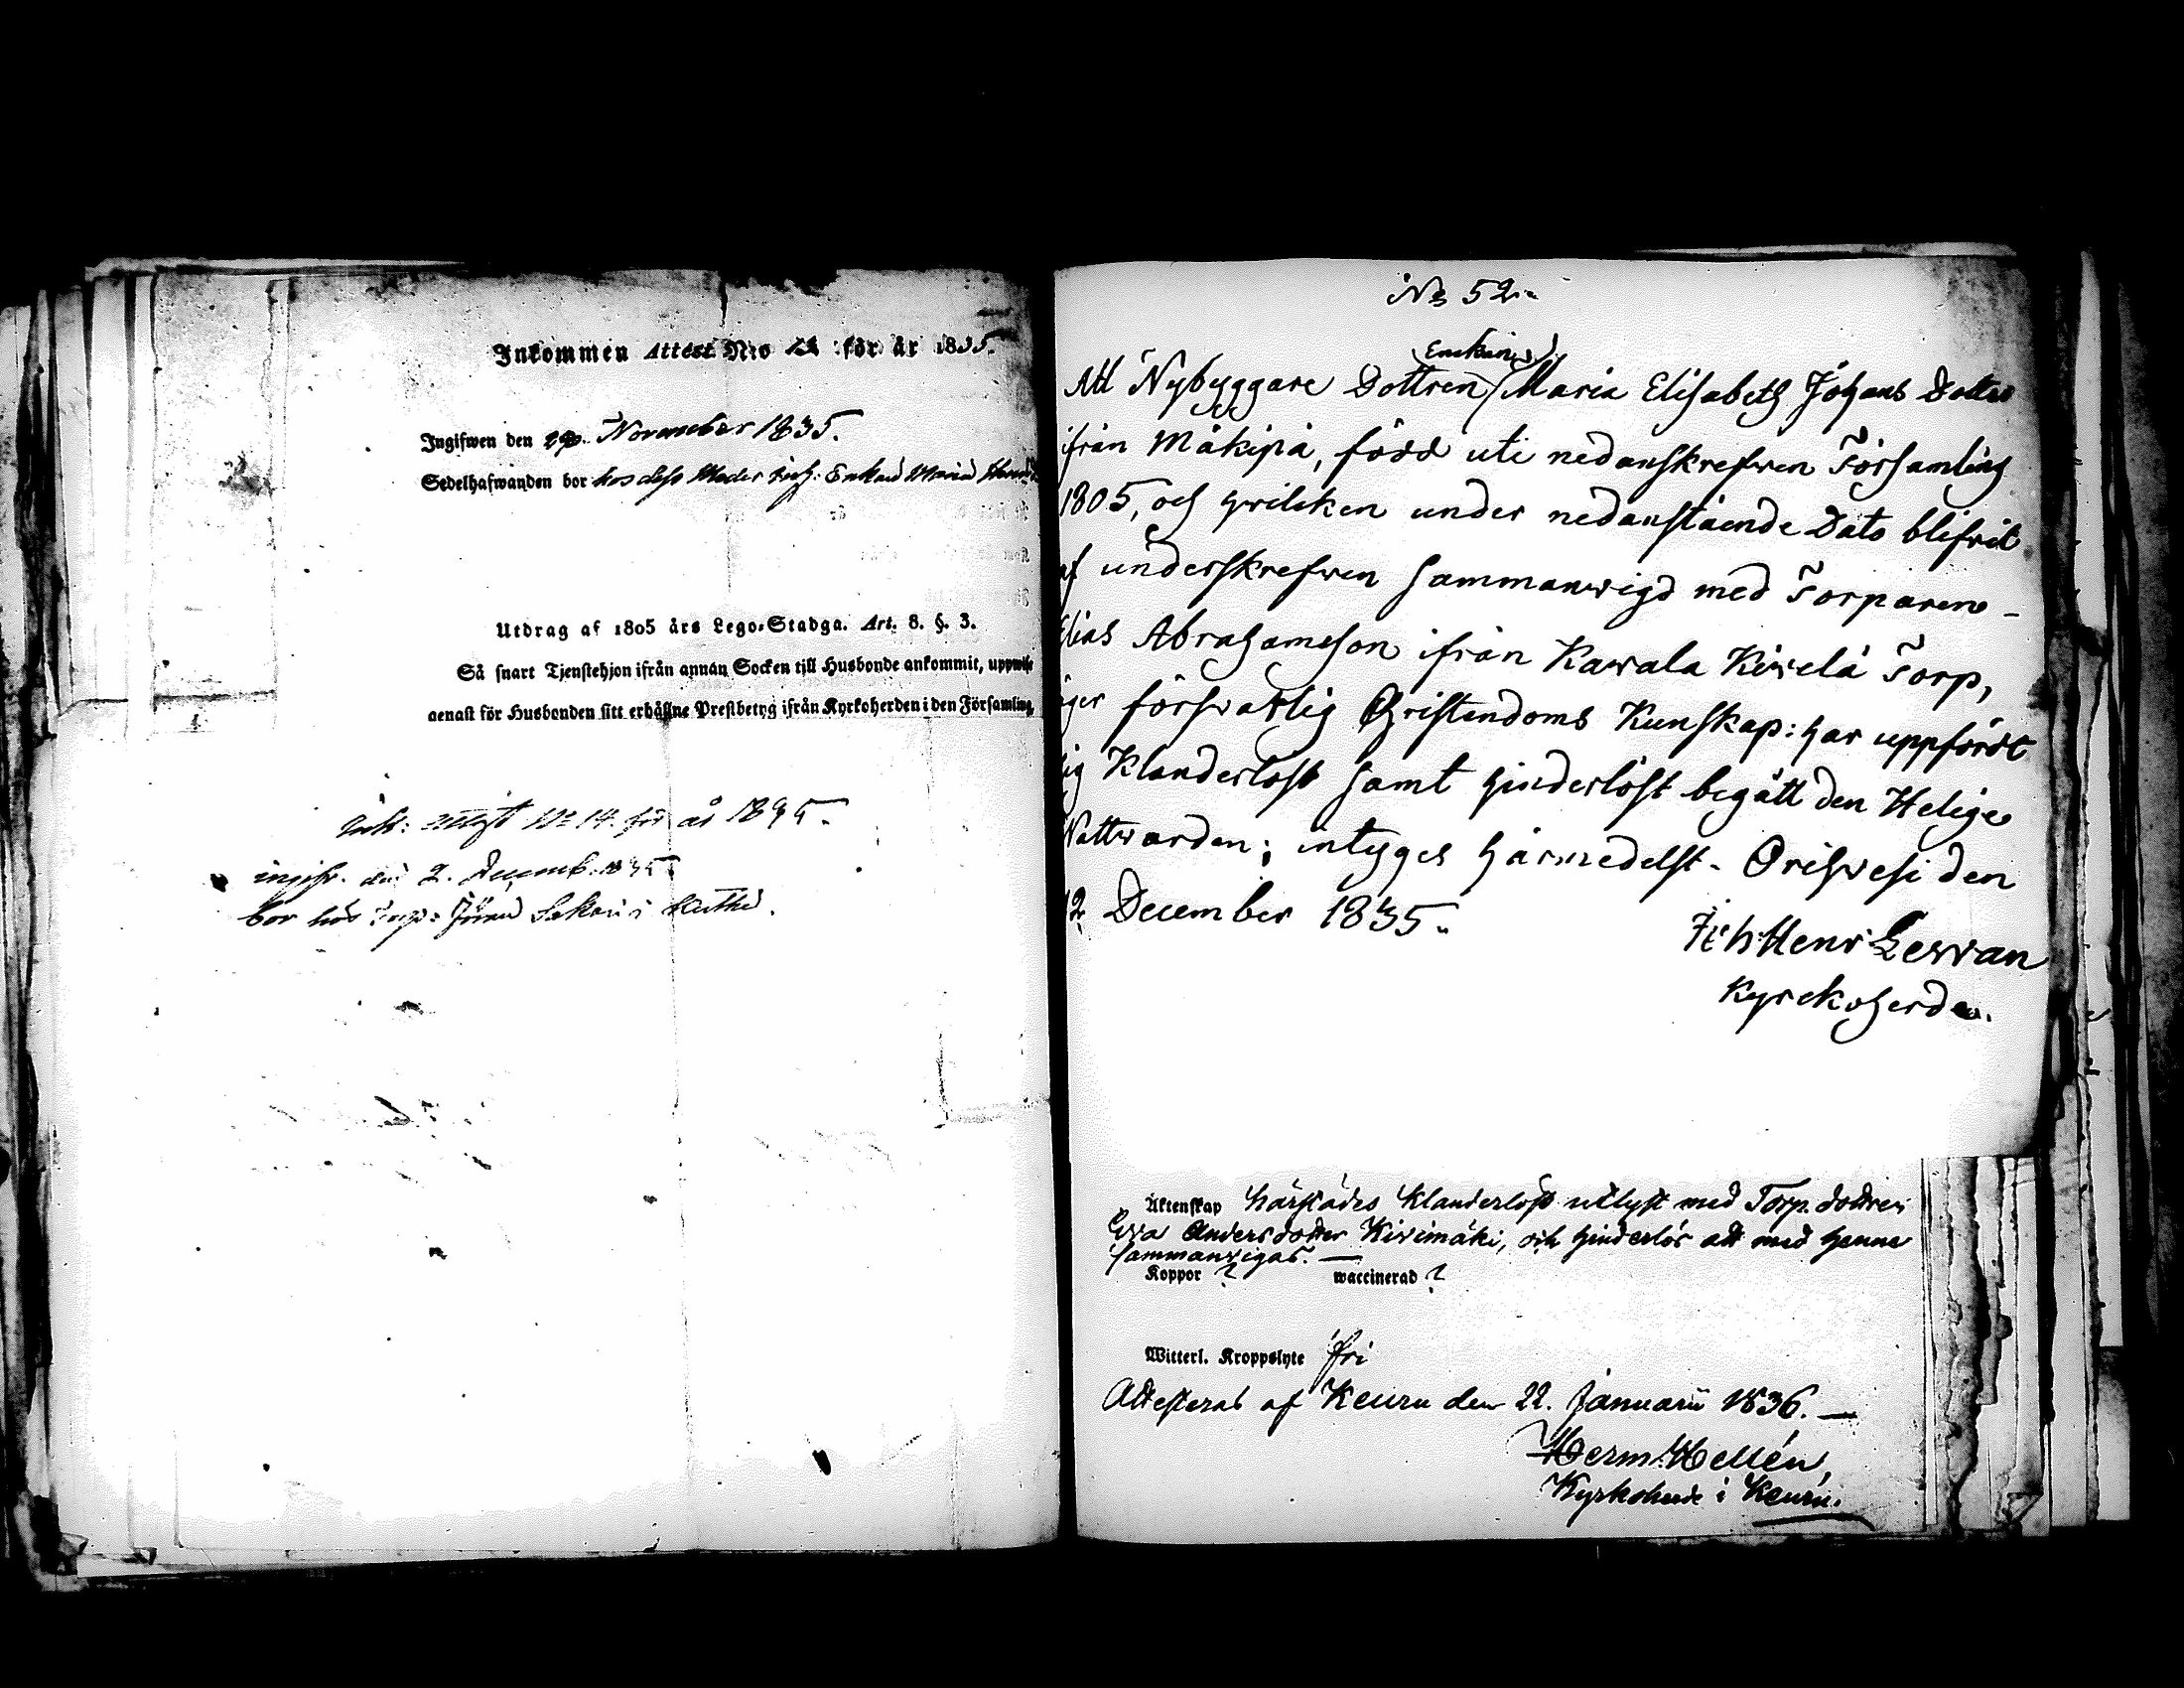 Inkommen Attest N:o för år 1835.
Ingifwen den November 1835.
Sedelhafwanden bor hos dess Moder Enkan Maria
Utdrag af 1805 års Lego-Stadga. Art. 8. §. 3.
Så snart Tjenstehjon ifrån annan Socken till Husbonde ankommit, uppwise
genast för Husbonden sitt erhållne Prestbetyg ifrån Kyrkoherden i den Församling,
attest No 14. för år 1835.
ingifv. den 2. Decemb. 1835
bor hos Torp:
No 52.
Enckan
Att Nybyggare Dottren Maria Elisabeth Johans Dotter
ifrån Mäkipä, född uti nedanskrefwen Församling
1805, och hwilcken under nedanstående Dato blifvit
af underskrefwen sammanwigd med Torparen
Elias Abrahamsson ifrån Kawala Kiwelä Torp,
äger förswarlig Christendoms Kunskap: har uppfördt
sig Klanderlöst samt hinderlöst begått den Helige
Nattwarden; intyges härmedelst. Orihvesi den
12 December 1835.
Joh Henr Lewan
Kyrckoherde.
Äktenskap härstädes klanderlöst utlyst med Torp. dottren
Eva Andersdotter Kivimäki, och hinderlös att med henne
sammanvigas. —
Koppor ? waccinerad ?
Witterl. Kroppslyte fri
Attesteras af Keuru den 22. Januarii 1836. —
Herm. Hellén,
Kyrkoherde i Keuru.